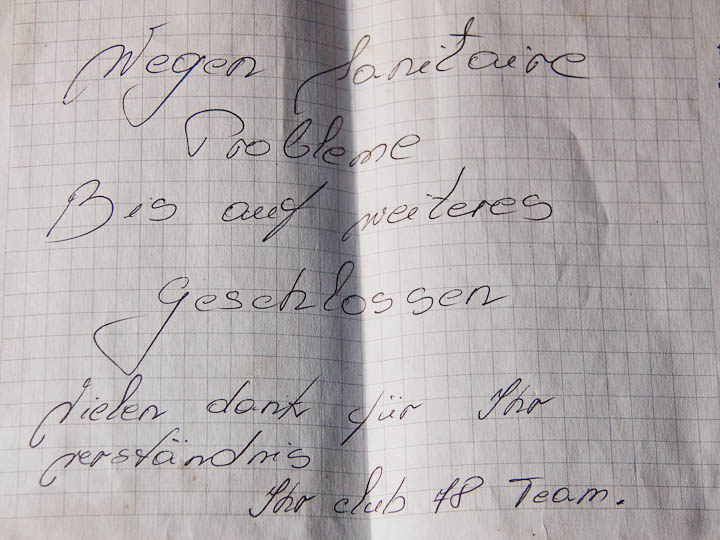 Wegen Sanitaire
Probleme
Bis auf weiteres
Geschlossen
Vielen dank für Ihr
verständnis
Ihr club 48 Team.